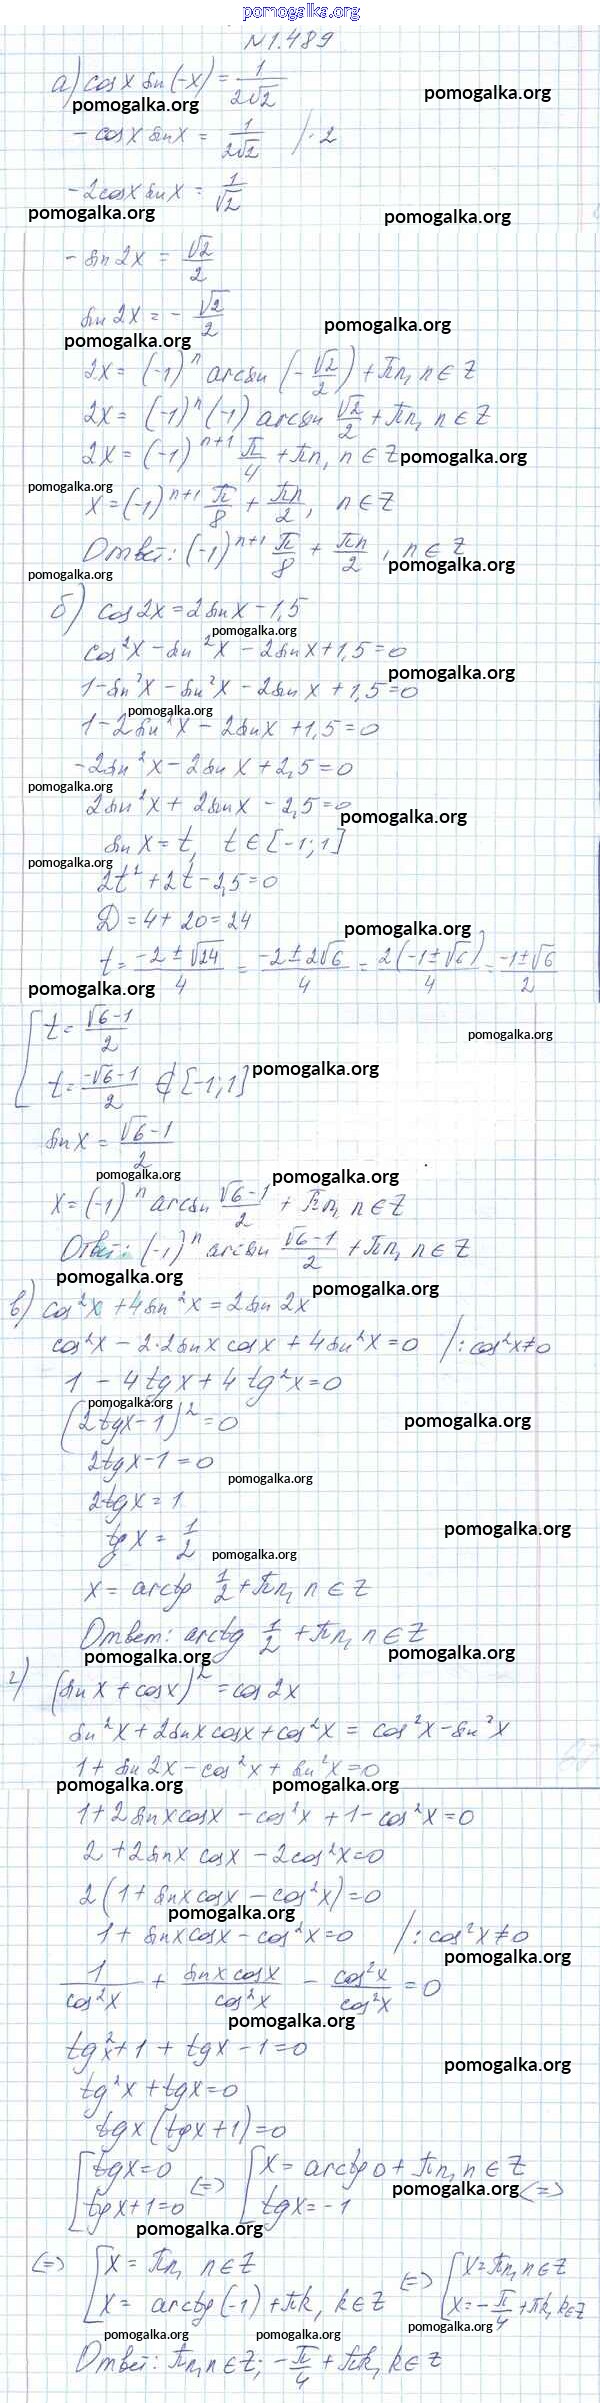 pomogalka.org
№1.489
а) cos x sin(-x) = 1/(2√2)
pomogalka.org pomogalka.org
- cos x sin x = 1/(2√2) /·2
-2cos x sin x = 1/√2
pomogalka.org pomogalka.org
- sin 2x = √2/2
sin 2x = - √2/2
pomogalka.org
pomogalka.org
2x = (-1)ⁿ arcsin (-√2/2) + πn, n ∈ Z
2x = (-1)ⁿ (-1) arcsin √2/2 + πn, n ∈ Z
2x = (-1)ⁿ⁺¹ π/4 + πn, n ∈ Z pomogalka.org
pomogalka.org
x = (-1)ⁿ⁺¹ π/8 + πn/2, n ∈ Z
Ответ: (-1)ⁿ⁺¹ π/8 + πn/2, n ∈ Z
pomogalka.org
pomogalka.org
б) cos 2x = 2 sin x - 1,5
pomogalka.org
cos²x - sin²x - 2sin x + 1,5 = 0
pomogalka.org
1 - sin²x - sin²x - 2sin x + 1,5 = 0
pomogalka.org
1 - 2sin²x - 2sin x + 1,5 = 0
-2sin²x - 2sin x + 2,5 = 0
pomogalka.org
2sin²x + 2sin x - 2,5 = 0
pomogalka.org
sin x = t, t ∈ [-1; 1]
pomogalka.org
2t² + 2t - 2,5 = 0
D = 4 + 20 = 24
pomogalka.org
t = (-2 ± √24)/4 = (-2 ± 2√6)/4 = 2(-1 ± √6)/4 = (-1 ± √6)/2
pomogalka.org
[ t = (√6 - 1)/2
pomogalka.org
t = (-√6 - 1)/2 ∉ [-1; 1] pomogalka.org
sin x = (√6 - 1)/2
pomogalka.org pomogalka.org
x = (-1)ⁿ arcsin (√6 - 1)/2 + πn, n ∈ Z
Ответ: (-1)ⁿ arcsin (√6 - 1)/2 + πn, n ∈ Z
pomogalka.org pomogalka.org
в) cos²x + 4sin²x = 2sin 2x
cos²x - 2·2sin x cos x + 4sin²x = 0 /: cos²x ≠ 0
1 - 4tg x + 4tg²x = 0
pomogalka.org
(2tg x - 1)² = 0
pomogalka.org
2tg x - 1 = 0
pomogalka.org
2tg x = 1
tg x = 1/2
pomogalka.org
pomogalka.org
x = arctg 1/2 + πn, n ∈ Z
Ответ: arctg 1/2 + πn, n ∈ Z
pomogalka.org pomogalka.org
г) (sin x + cos x)² = cos 2x
sin²x + 2sin x cos x + cos²x = cos²x - sin²x
1 + sin 2x - cos²x + sin²x = 0
pomogalka.org pomogalka.org
1 + 2sin x cos x - cos²x + 1 - cos²x = 0
2 + 2sin x cos x - 2cos²x = 0
2(1 + sin x cos x - cos²x) = 0
pomogalka.org
1 + sin x cos x - cos²x = 0 /: cos²x ≠ 0
pomogalka.org
1/cos²x + sin x cos x/cos²x - cos²x/cos²x = 0
pomogalka.org
tg²x + 1 + tg x - 1 = 0
pomogalka.org
tg²x + tg x = 0
tg x (tg x + 1) = 0
[ tg x = 0 ⇔ [ x = arctg 0 + πn, n ∈ Z
tg x + 1 = 0 tg x = -1 pomogalka.org ⇔
pomogalka.org
⇔ [ x = πn, n ∈ Z ⇔ [ x = πn, n ∈ Z
x = arctg(-1) + πk, k ∈ Z x = -π/4 + πk, k ∈ Z
pomogalka.org pomogalka.org pomogalka.org
Ответ: πn, n ∈ Z; -π/4 + πk, k ∈ Z